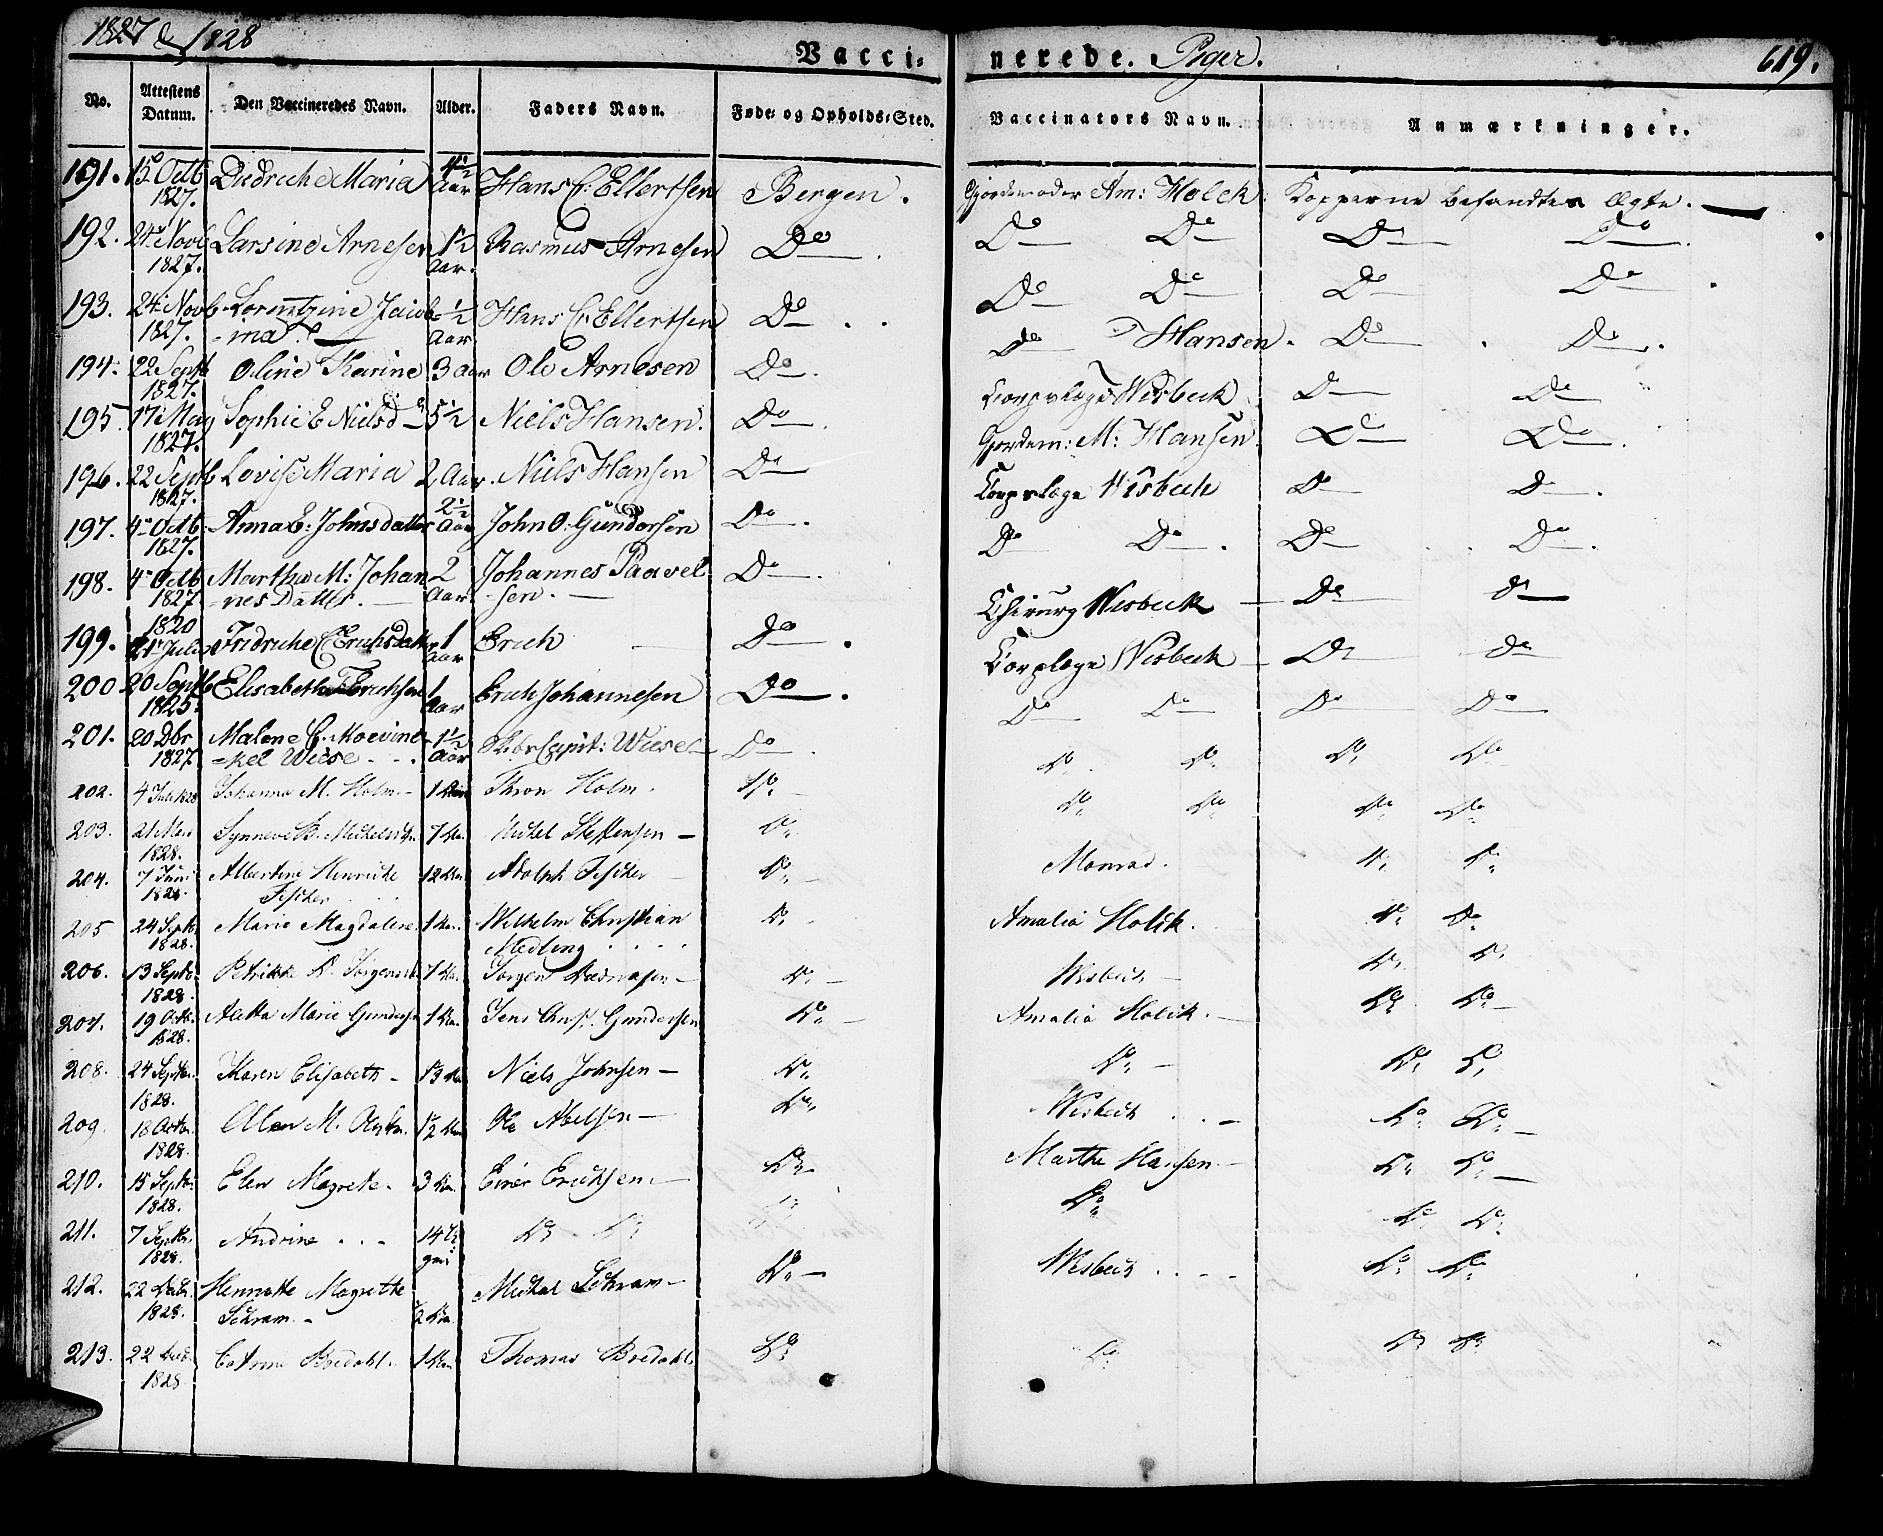 1827 & 1828
Vacci- nerede. Piger. 619.
No. Attestens Datum. Den Vaccineredes Navn. Alder. Faders Navn. Føde- og Opholds-Sted. Vaccinators Navn. Anmærkninger.
191. 15 Octb 1827. Diedriche Maria 4½ Aar Hans C: Ellertsen Bergen. Gjordemoder Am: Holck Kopperne befandtes Ægte.
192. 24 Novb 1827. Larsine Arnesen 1½ Aar. Rasmus Arnesen Do Do Do Do Do
193. 24 Novb 1827. Lorentzine Jacob-ma ½ Aar. Hans C. Ellertsen Do Do Do Do Do
194. 22 Septb 1827. Oline Karine 3 Aar Ole Arnesen Do. do Hansen. Do Do.
195. 17 May 1827. Sophie E Nielsd 5½ Niels Hansen. Do. Corpslæge Wisbeck Do Do
196. 22 Septb 1827. Lovise Maria 2 Aar. Niels Hansen Do Gjordem: M: Hansen Do Do.
197. 4 Octb. 1827. Anna E: Johnsdatter 2½ Aar John O. Gundersen Do. Corpslæge Wisbech Do Do.
198. 4 Octb. 1827 Martha M: Johan-nes Datter. 2 Aar. Johannes Paavel-sen. Do. Do Do. Do Do.
199. 1820 21 Juli Fridriche C Erichsdatter 1 Aar Erich Do. Chirurg Wisbeck Do do
200 20 Septb 1825. Elisabeth Erichsen 1 Aar Erich Johannesen Do. Corpslæge Wisbeck Do do
201. 20 Dbr 1827 Malene C. -kel Wiese 1½ Aar Capit: Wiese Do. Do Do Do Do
202. 4 Juli 1828 Johanna M. Holm 1 Aar Thron Holm. Do Do. Do. Do. Do.
203. 21 1828. Synneve B. 7 Aar. Michel Steffensen Do. Do. Do. Do. Do.
204. 7 Juni 1828. Albertine Henricke Fischer 12 Aar. Adolph Fischer Do. Monrad. Do. Do.
205 24 Septb. 1828. Marie Magdalene 1 Aar. Wilhelm Christian Medling Do. Amalia Holck. Do. Do.
206. 13 Septb. 1828. Petrikke D. 7 Aar. Jørgen Do. Wisbech Do. Do.
207. 19 Octb. 1828. Aletta Marie Gundersen 1 Aar. Jens Christ. Gundersen Do. Amalia Holck. Do. Do.
208. 24 Septb. 1828. Karen Elisabeth Niels Johnsen Do. Do. Do. Do.
209. 18 Octb. 1828. M. ½ Aar Ole Abelsen Do. Wisbech Do. Do.
210. 15 Septb. 1828. Elen Magrete. 3 Aar. Einer Erichsen. Do. Marthe Hansen. Do. Do.
211. 7 Septb. 1828. Andrine 14 Do. Do. Do. Do. Do. Do.
212. 22 1828. Hennrette Magrethe Schram. ½ Aar Michal Schram Do. Wisbech Do. Do.
213. 22 1828 Catrine Bredahl. 1 Aar Thomas Bredahl Do. Do. Do. Do.